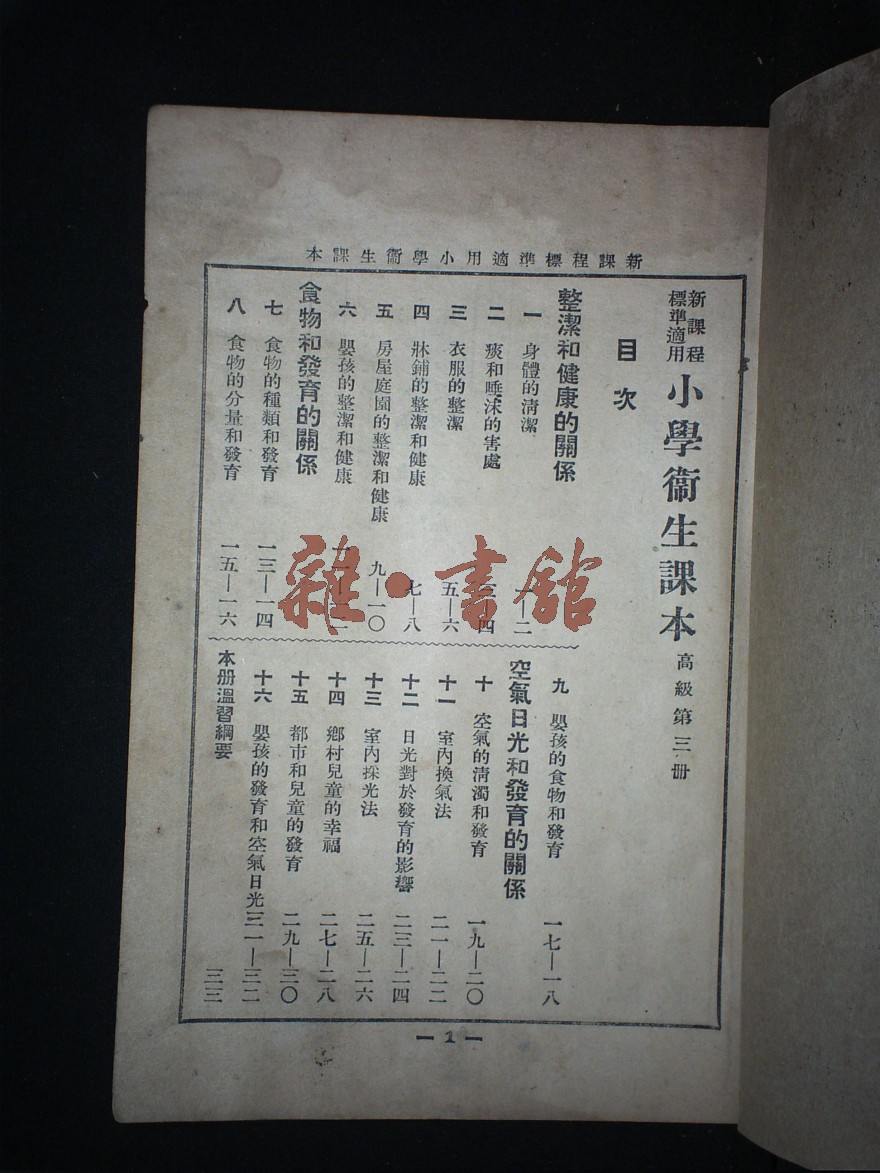 新課程標準適用小學衞生課本
新課程
標準適用
小學衞生課本 高級第三册
目次
整潔和健康的關係
一 身體的清潔 一—二
二 痰和唾沫的害處 三—四
三 衣服的整潔 五—六
四 牀鋪的整潔和健康 七—八
五 房屋庭園的整潔和健康 九—一〇
六 嬰孩的整潔和健康
食物和發育的關係
七 食物的種類和發育 一三—一四
八 食物的分量和發育 一五—一六
九 嬰孩的食物和發育 一七—一八
空氣日光和發育的關係
十 空氣的清濁和發育 一九—二〇
十一 室內換氣法 二一—二二
十二 日光對於發育的影響 二三—二四
十三 室內採光法 二五—二六
十四 鄉村兒童的幸福 二七—二八
十五 都市和兒童的發育 二九—三〇
十六 嬰孩的發育和空氣日光 三一—三二
本册溫習綱要 三三
— 1 —
雜·書館